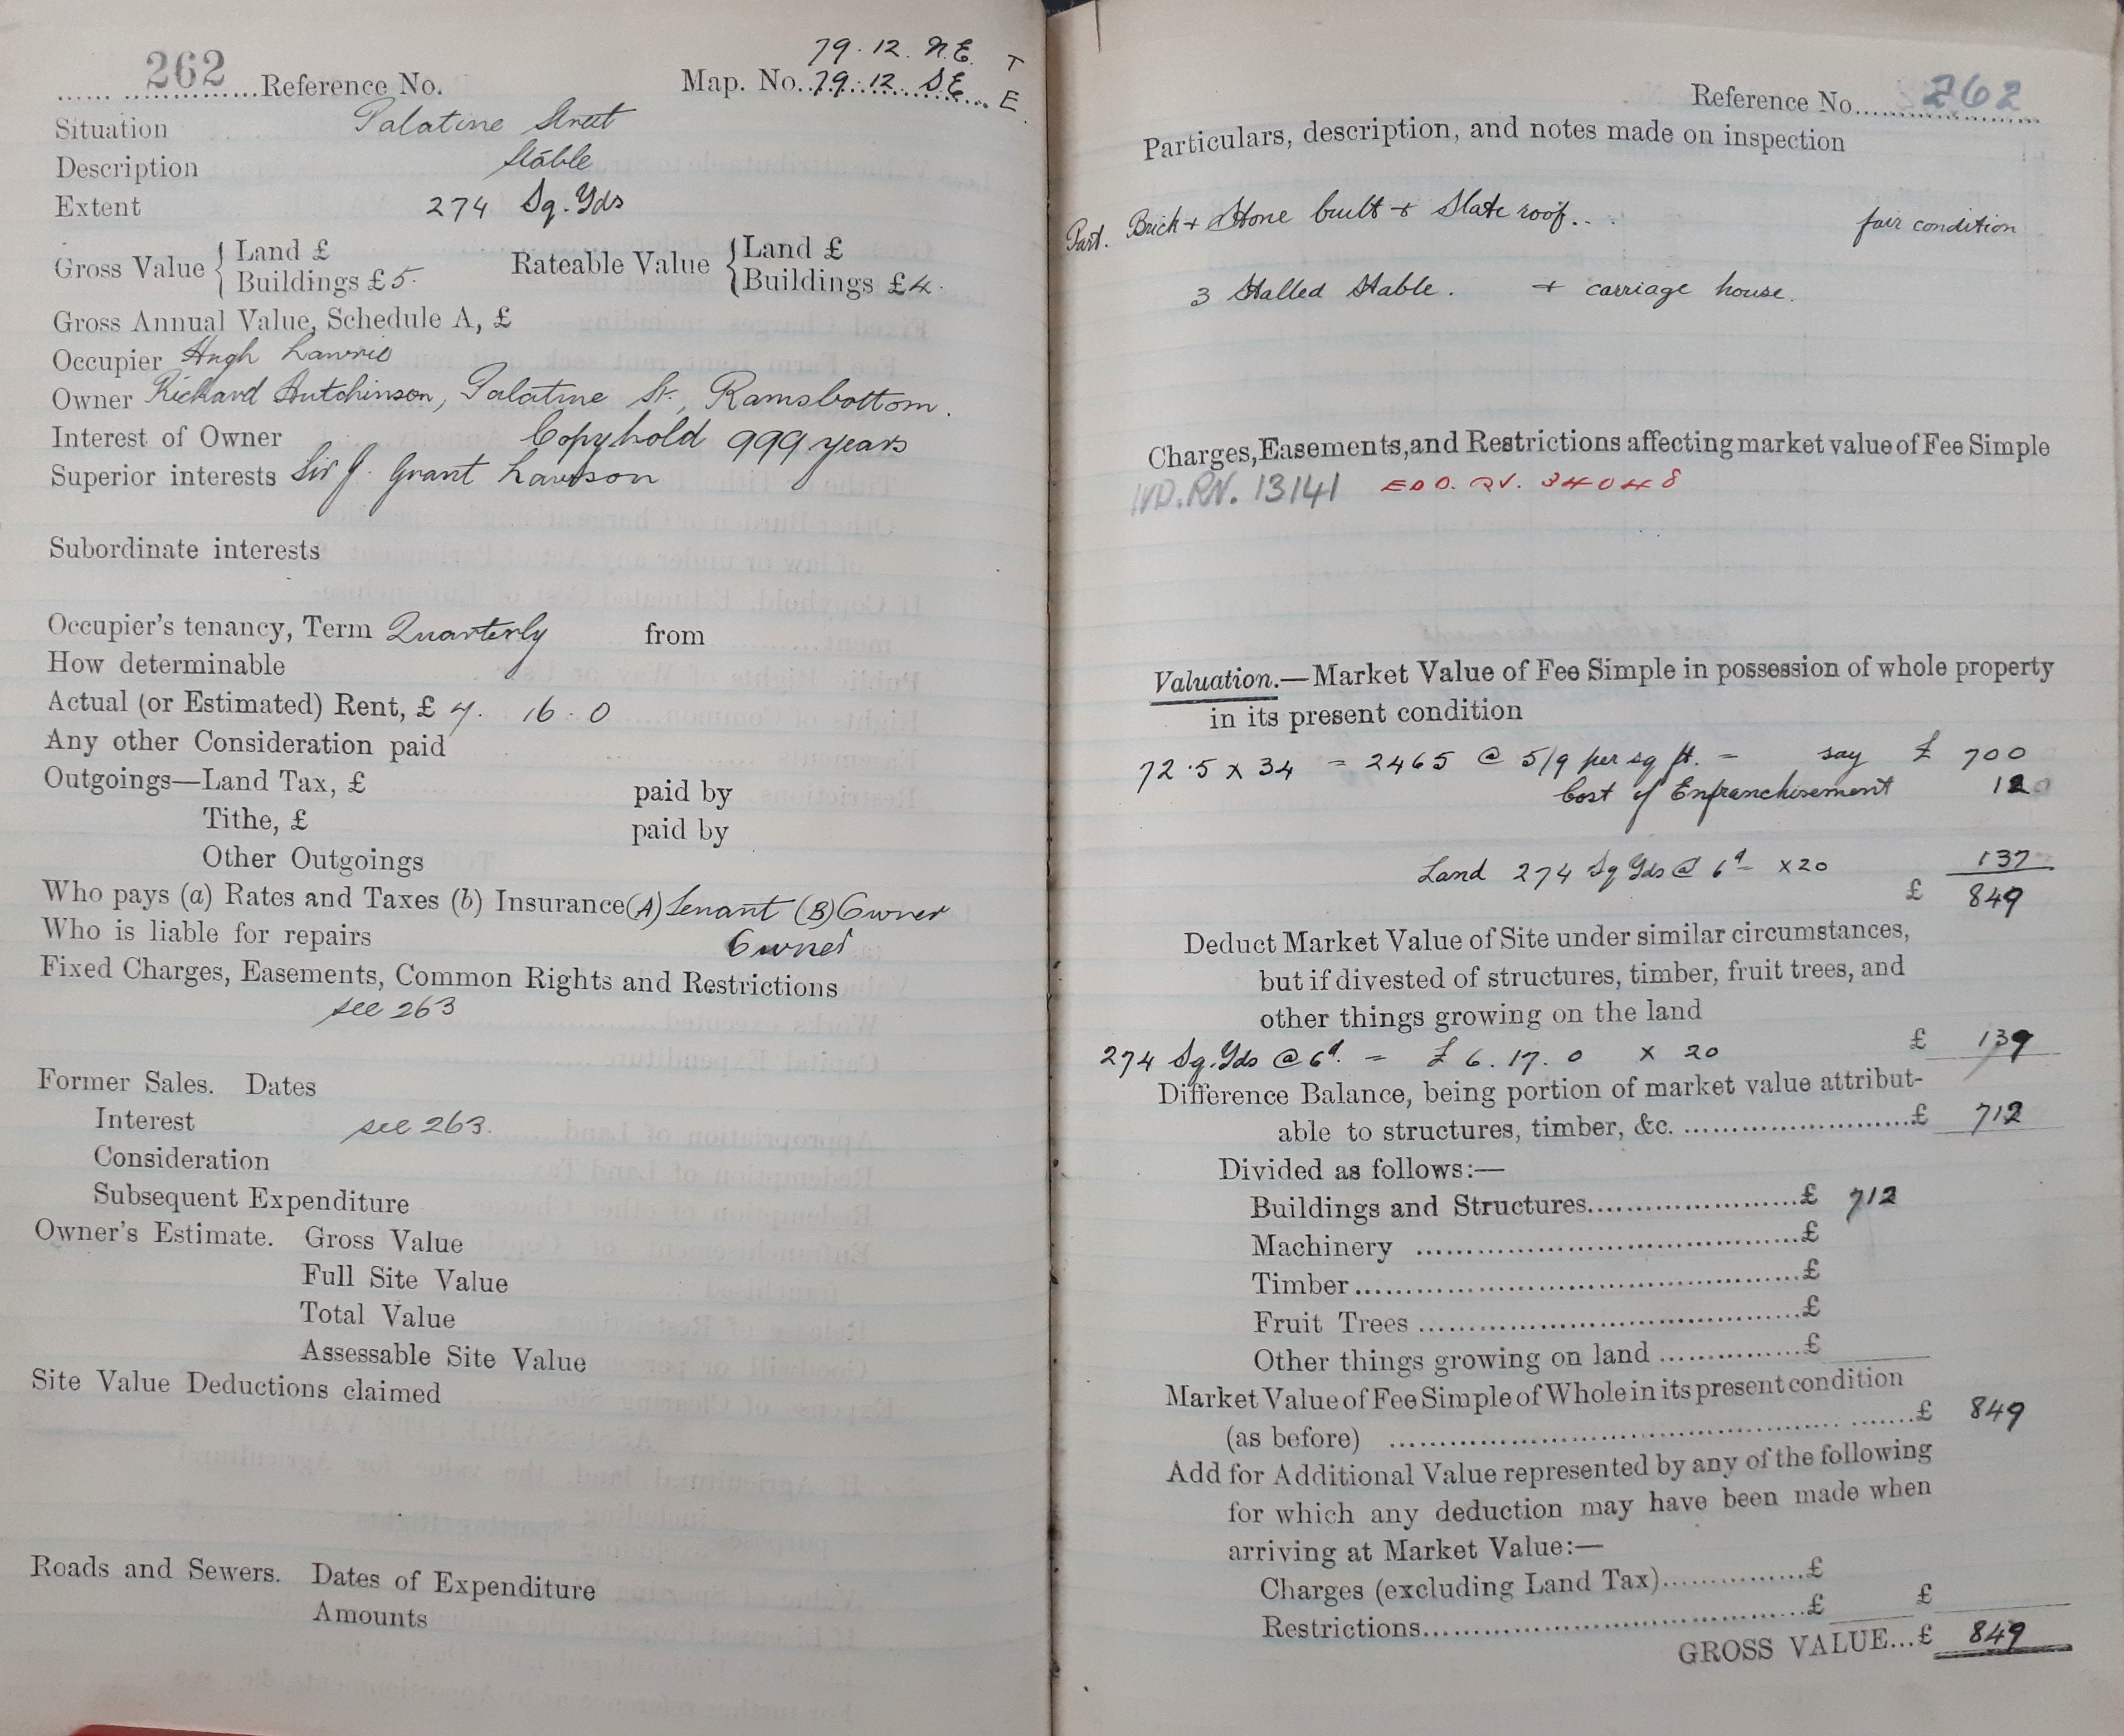 262 Reference No.
79.12. N.E. T
Map. No. 79.12. S.E. E.
Situation Palatine Street
Description Stable
Extent 274 Sq. Yds
Gross Value { Land £
Buildings £5.
Rateable Value { Land £
Buildings £4.
Gross Annual Value, Schedule A, £
Occupier Hugh Lawrie
Owner Richard Hutchinson, Palatine St., Ramsbottom.
Interest of Owner Copyhold 999 years
Superior interests Sir J. Grant Lawson
Subordinate interests
Occupier's tenancy, Term Quarterly from
How determinable
Actual (or Estimated) Rent, £ 7. 16. 0
Any other Consideration paid
Outgoings—Land Tax, £ paid by
Tithe, £ paid by
Other Outgoings
Who pays (a) Rates and Taxes (b) Insurance (A) Tenant (B) Owner
Who is liable for repairs Owner
Fixed Charges, Easements, Common Rights and Restrictions
see 263
Former Sales. Dates
Interest see 263.
Consideration
Subsequent Expenditure
Owner's Estimate. Gross Value
Full Site Value
Total Value
Assessable Site Value
Site Value Deductions claimed
Roads and Sewers. Dates of Expenditure
Amounts
Reference No. 262
Particulars, description, and notes made on inspection
Part. Brick + Stone built + Slate roof... fair condition
3 Stalled Stable. + carriage house.
Charges, Easements, and Restrictions affecting market value of Fee Simple
IVD. RN. 13141 34048
Valuation.—Market Value of Fee Simple in possession of whole property
in its present condition
72.5 x 34 = 2465 @ 5/9 per sq ft. = say £ 700
Cost of Enfranchisement 12
Land 274 Sq Yds @ 6d x 20 137
£ 849
Deduct Market Value of Site under similar circumstances,
but if divested of structures, timber, fruit trees, and
other things growing on the land
274 Sq. Yds @ 6d. = £ 6. 17. 0 x 20 £ 139
Difference Balance, being portion of market value attribut-
able to structures, timber, &c. £ 712
Divided as follows:—
Buildings and Structures £ 712
Machinery £
Timber £
Fruit Trees £
Other things growing on land £
Market Value of Fee Simple of Whole in its present condition
(as before) £ 849
Add for Additional Value represented by any of the following
for which any deduction may have been made when
arriving at Market Value:—
Charges (excluding Land Tax) £
Restrictions £ £
GROSS VALUE...£ 849